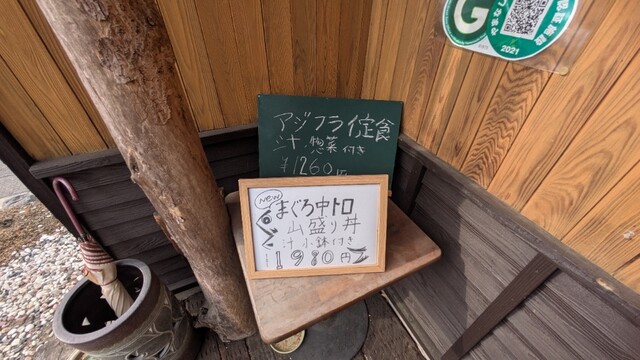 G
2021
アジフライ定食
汁、惣菜付き
¥1260円
New
まぐろ中トロ
山盛り丼
汁 小鉢付き
1980円